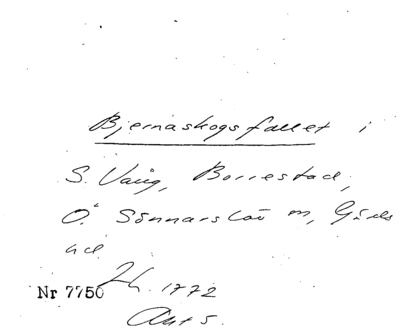 Bjernaskogsfallet i
S. Vång, Borrestad,
Ö. Sönnarslöv m, Gärds
hd
Nr 7750 1772
Akt 5.